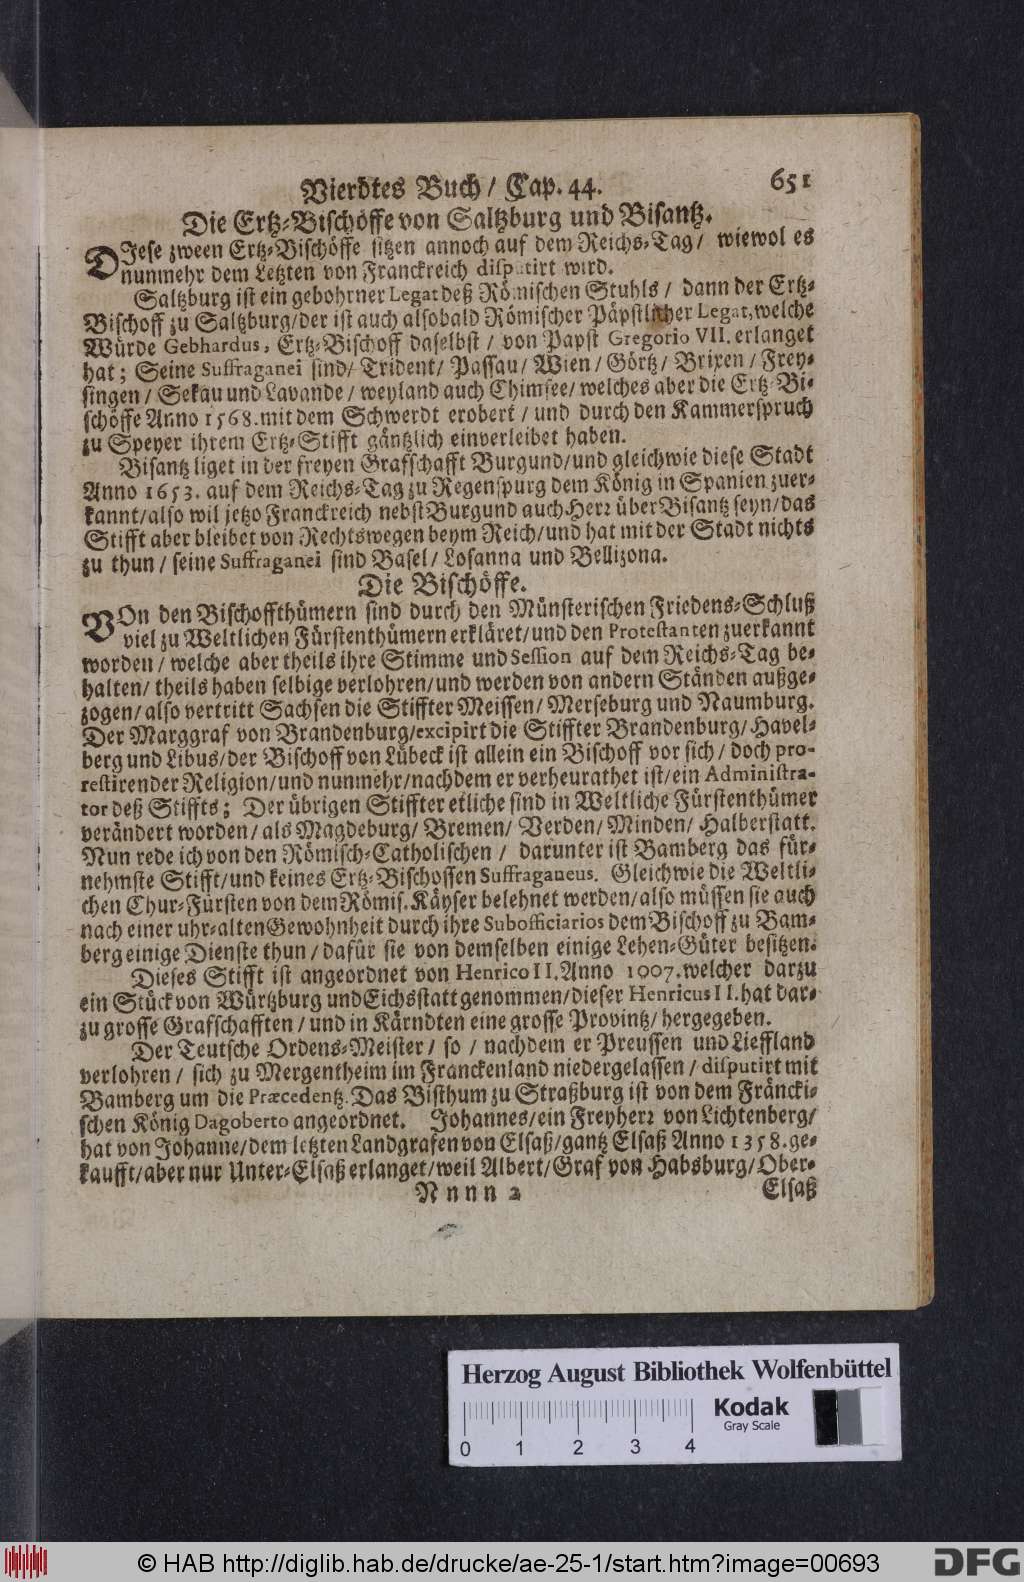 Vierdtes Buch / Cap. 44. 651
Die Ertz-Bischöffe von Saltzburg und Bisantz.
DIese zween Ertz-Bischöffe sitzen annoch auf dem Reichs-Tag / wiewol es
nunmehr dem Letzten von Franckreich disputirt wird.
Saltzburg ist ein gebohrner Legat deß Römischen Stuhls / dann der Ertz-
Bischoff zu Saltzburg/der ist auch alsobald Römischer Päpstlicher Legat, welche
Würde Gebhardus, Ertz-Bischoff daselbst / von Papst Gregorio VII. erlanget
hat; Seine Suffraganei sind/ Trident/ Passau/ Wien / Görtz/ Brixen / Frey-
singen / Sekau und Lavande / weyland auch Chimsee/ welches aber die Ertz-Bi-
schöffe Anno 1568. mit dem Schwerdt erobert / und durch den Kammerspruch
zu Speyer ihrem Ertz-Stifft gäntzlich einverleibet haben.
Bisantz liget in der freyen Grafschafft Burgund/und gleichwie diese Stadt
Anno 1653. auf dem Reichs-Tag zu Regenspurg dem König in Spanien zuer-
kannt/also wil jetzo Franckreich nebst Burgund auch Herr über Bisantz seyn/das
Stifft aber bleibet von Rechtswegen beym Reich/und hat mit der Stadt nichts
zu thun / seine Suffraganei sind Basel / Losanna und Bellizona.
Die Bischöffe.
VOn den Bischoffthümern sind durch den Münsterischen Friedens-Schluß
viel zu Weltlichen Fürstenthümern erkläret/und den Protestanten zuerkannt
worden / welche aber theils ihre Stimme und Session auf dem Reichs-Tag be-
halten/ theils haben selbige verlohren/und werden von andern Ständen außge-
zogen/ also vertritt Sachsen die Stiffter Meissen/ Merseburg und Naumburg.
Der Marggraf von Brandenburg/excipirt die Stiffter Brandenburg/ Havel-
berg und Libus/der Bischoff von Lübeck ist allein ein Bischoff vor sich/ doch pro-
testirender Religion/und nunmehr/nachdem er verheurathet ist/ein Administra-
tor deß Stiffts; Der übrigen Stiffter etliche sind in Weltliche Fürstenthümer
verändert worden/ als Magdeburg/ Bremen/ Verden/ Minden/ Halberstatt.
Nun rede ich von den Römisch-Catholischen / darunter ist Bamberg das für-
nehmste Stifft/und keines Ertz-Bischoffen Suffraganeus. Gleichwie die Weltli-
chen Chur-Fürsten von dem Römis. Käyser belehnet werden/also müssen sie auch
nach einer uhr-alten Gewohnheit durch ihre Subofficiarios dem Bischoff zu Bam-
berg einige Dienste thun / dafür sie von demselben einige Lehen-Güter besitzen.
Dieses Stifft ist angeordnet von Henrico II. Anno 1007. welcher darzu
ein Stück von Würtzburg und Eichsstatt genommen/dieser Henricus II. hat dar-
zu grosse Grafschafften / und in Kärndten eine grosse Provintz/ hergegeben.
Der Teutsche Ordens-Meister / so / nachdem er Preussen und Lieffland
verlohren / sich zu Mergentheim im Franckenland niedergelassen / disputirt mit
Bamberg um die Præcedentz. Das Bisthum zu Straßburg ist von dem Fräncki-
schen König Dagoberto angeordnet. Johannes/ein Freyherr von Lichtenberg/
hat von Johanne/dem letzten Landgrafen von Elsaß/gantz Elsaß Anno 1358. ge-
kaufft/aber nur Unter-Elsaß erlanget/weil Albert/Graf von Habsburg/ Ober-
Nnnn 2 Elsaß
Herzog August Bibliothek Wolfenbüttel
Kodak
Gray Scale
0 1 2 3 4
© HAB http://diglib.hab.de/drucke/ae-25-1/start.htm?image=00693
DFG